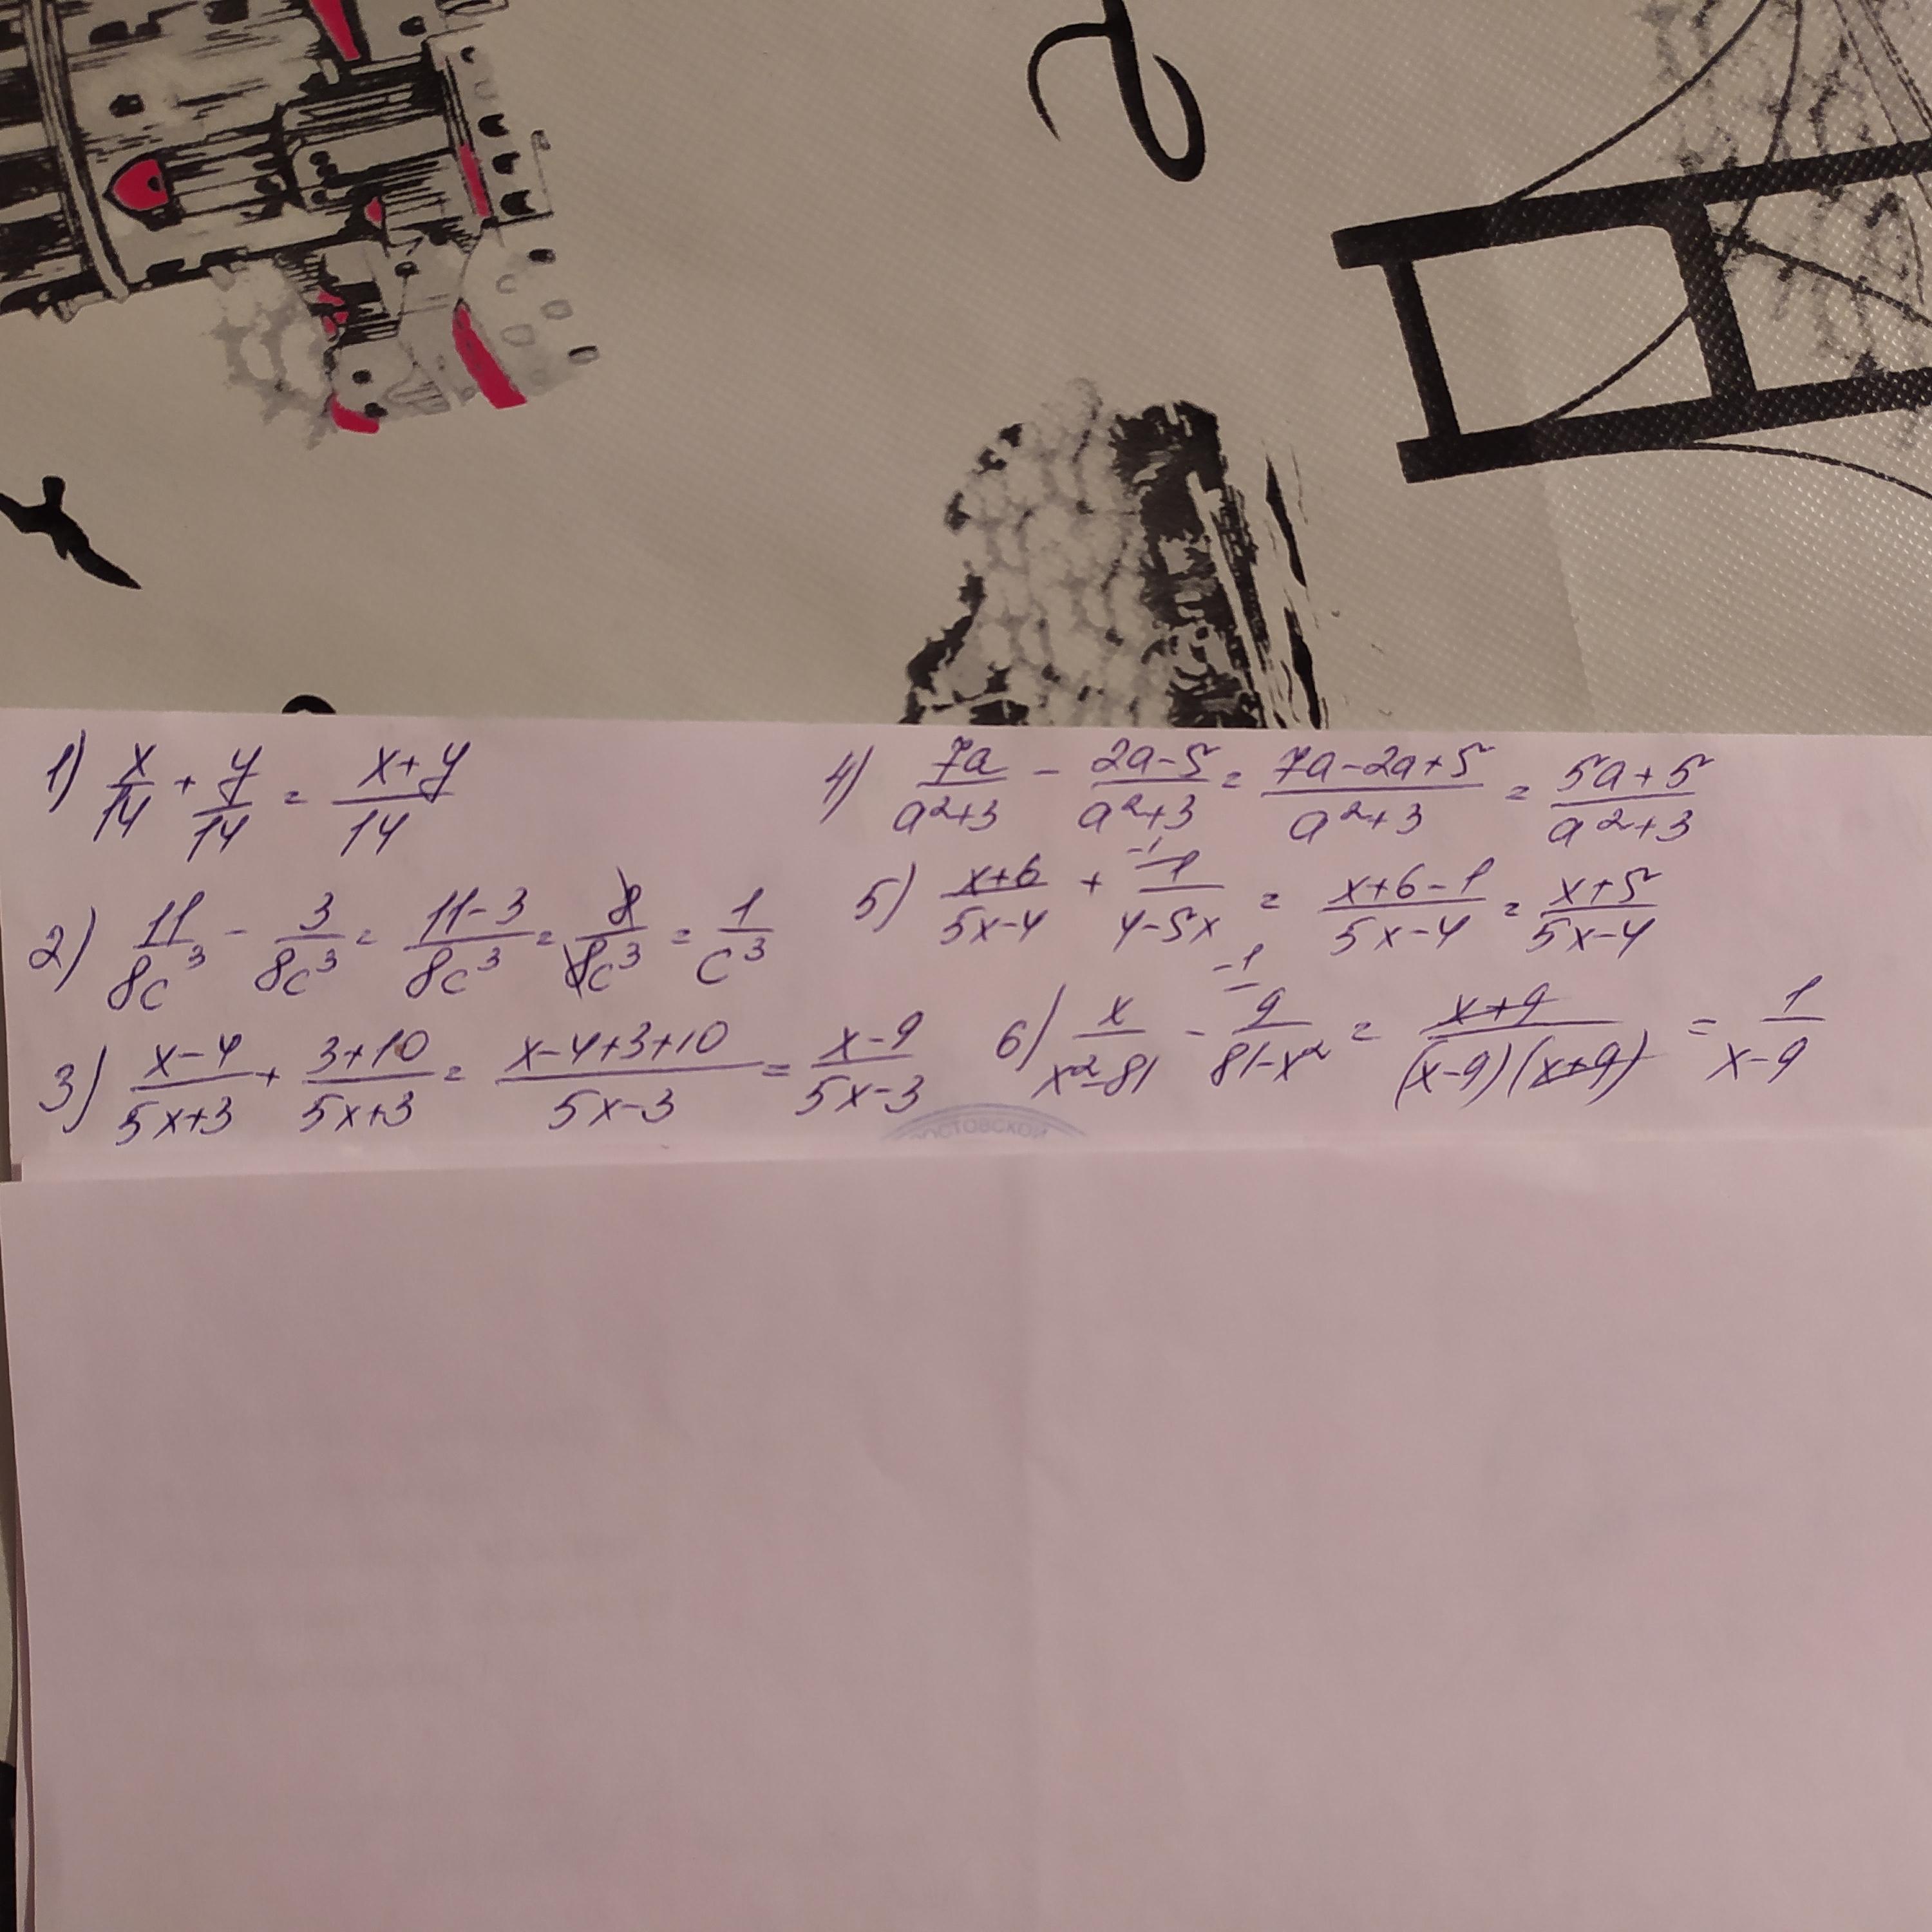 1) x/14 + y/14 = x+y/14
2) 11/8c³ - 3/8c³ = 11-3/8c³ = 8/8c³ = 1/c³
3) x-4/5x+3 + 3+10/5x+3 = x-4+3+10/5x-3 = x-9/5x-3
4) 7a/a²+3 - 2a-5/a²+3 = 7a-2a+5/a²+3 = 5a+5/a²+3
-1
5) x+6/5x-4 + 1/4-5x = x+6-1/5x-4 = x+5/5x-4
-1
6) x/x²-81 - 9/81-x² = x+9/(x-9)(x+9) = 1/x-9
РОСТОВСКОЙ